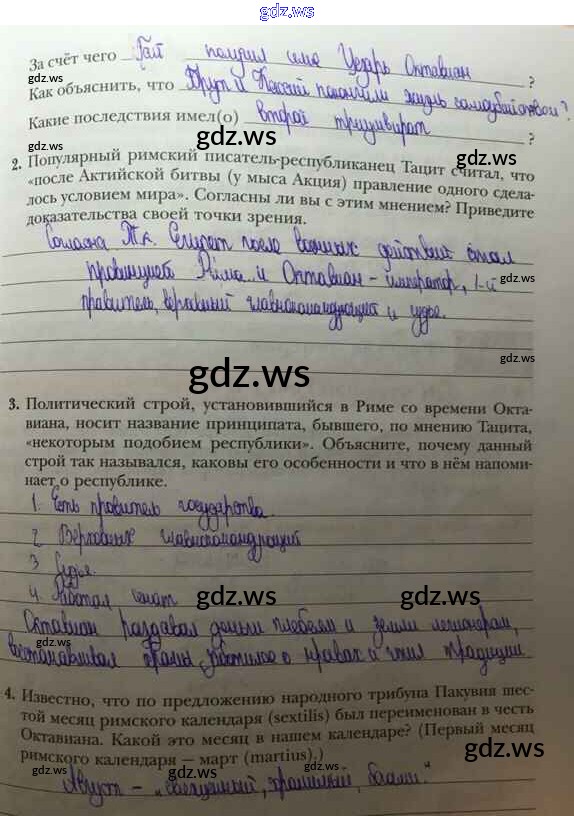 gdz.ws
За счёт чего Гай получил имя Цезарь Октавиан ?
gdz.ws gdz.ws
Как объяснить, что Брут и Кассий покончили жизнь самоубийством?
Какие последствия имел(о) второй триумвират ?
gdz.ws gdz.ws
2. Популярный римский писатель-республиканец Тацит считал, что
«после Актийской битвы (у мыса Акция) правление одного сдела-
лось условием мира». Согласны ли вы с этим мнением? Приведите
доказательства своей точки зрения.
gdz.ws
Согласна т.к. Египет после военных действий стал
провинцией Рима и Октавиан - император, 1-й
gdz.ws gdz.ws
правитель, верховный главнокомандующий и судья.
gdz.ws
gdz.ws
3. Политический строй, установившийся в Риме со времени Окта-
виана, носит название принципата, бывшего, по мнению Тацита,
«некоторым подобием республики». Объясните, почему данный
строй так назывался, каковы его особенности и что в нём напоми-
нает о республике.
1. Есть правитель государства.
gdz.ws gdz.ws
2 Верховный главнокомандующий
3 Судья.
4. Работал сенат
gdz.ws gdz.ws
Октавиан раздавал деньги плебеям и земли легионерам,
восстанавливал храмы, заботился о нравах и чтил традиции
gdz.ws gdz.ws
4. Известно, что по предложению народного трибуна Пакувия шес-
той месяц римского календаря (sextilis) был переименован в честь
Октавиана. Какой это месяц в нашем календаре? (Первый месяц
римского календаря — март (martius).)
gdz.ws gdz.ws
Август - „священный, хранимый, богами."
gdz.ws
gdz.ws